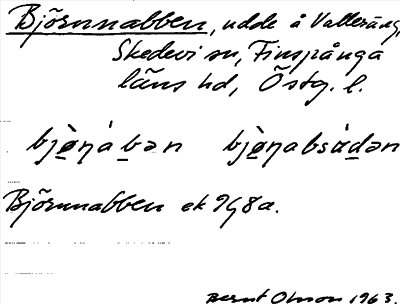 Björnnabben, udde å Valleräng,
Skedevi sn, Finspånga
läns hd, Östg. l.
bjø̀ṇábən bjø̀ṇabsúdən
Björnnabben ek 9G8a.
Bernt Olsson 1963.